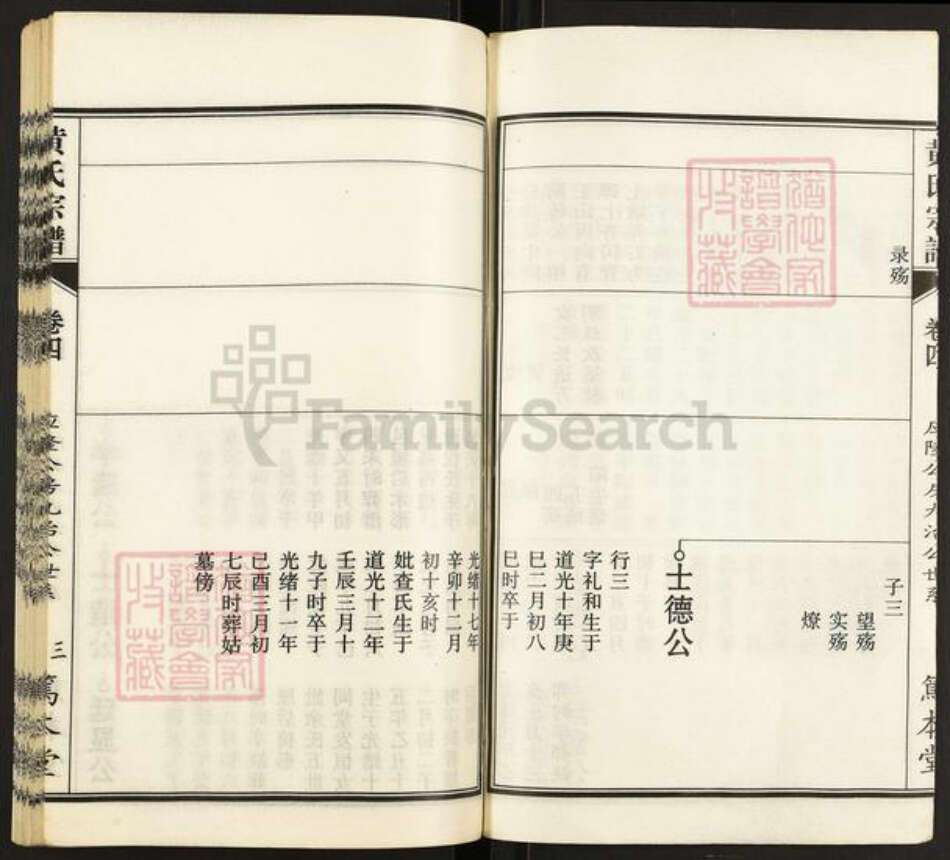 黄氏宗谱
卷四
笃本堂
录殇
子三
望殇
实殇
燎
士德公
行三
字礼和生于
道光十年庚
巳二月初八
巳时卒于
光绪十七年
辛卯十二月
初十亥时
妣查氏生于
道光十二年
壬辰三月十
九子时卒于
光绪十一年
己酉三月初
七辰时葬姑
墓傍
黄氏宗谱
卷四
三
笃本堂
譜學會
收藏
譜學會
收藏
FamilySearch